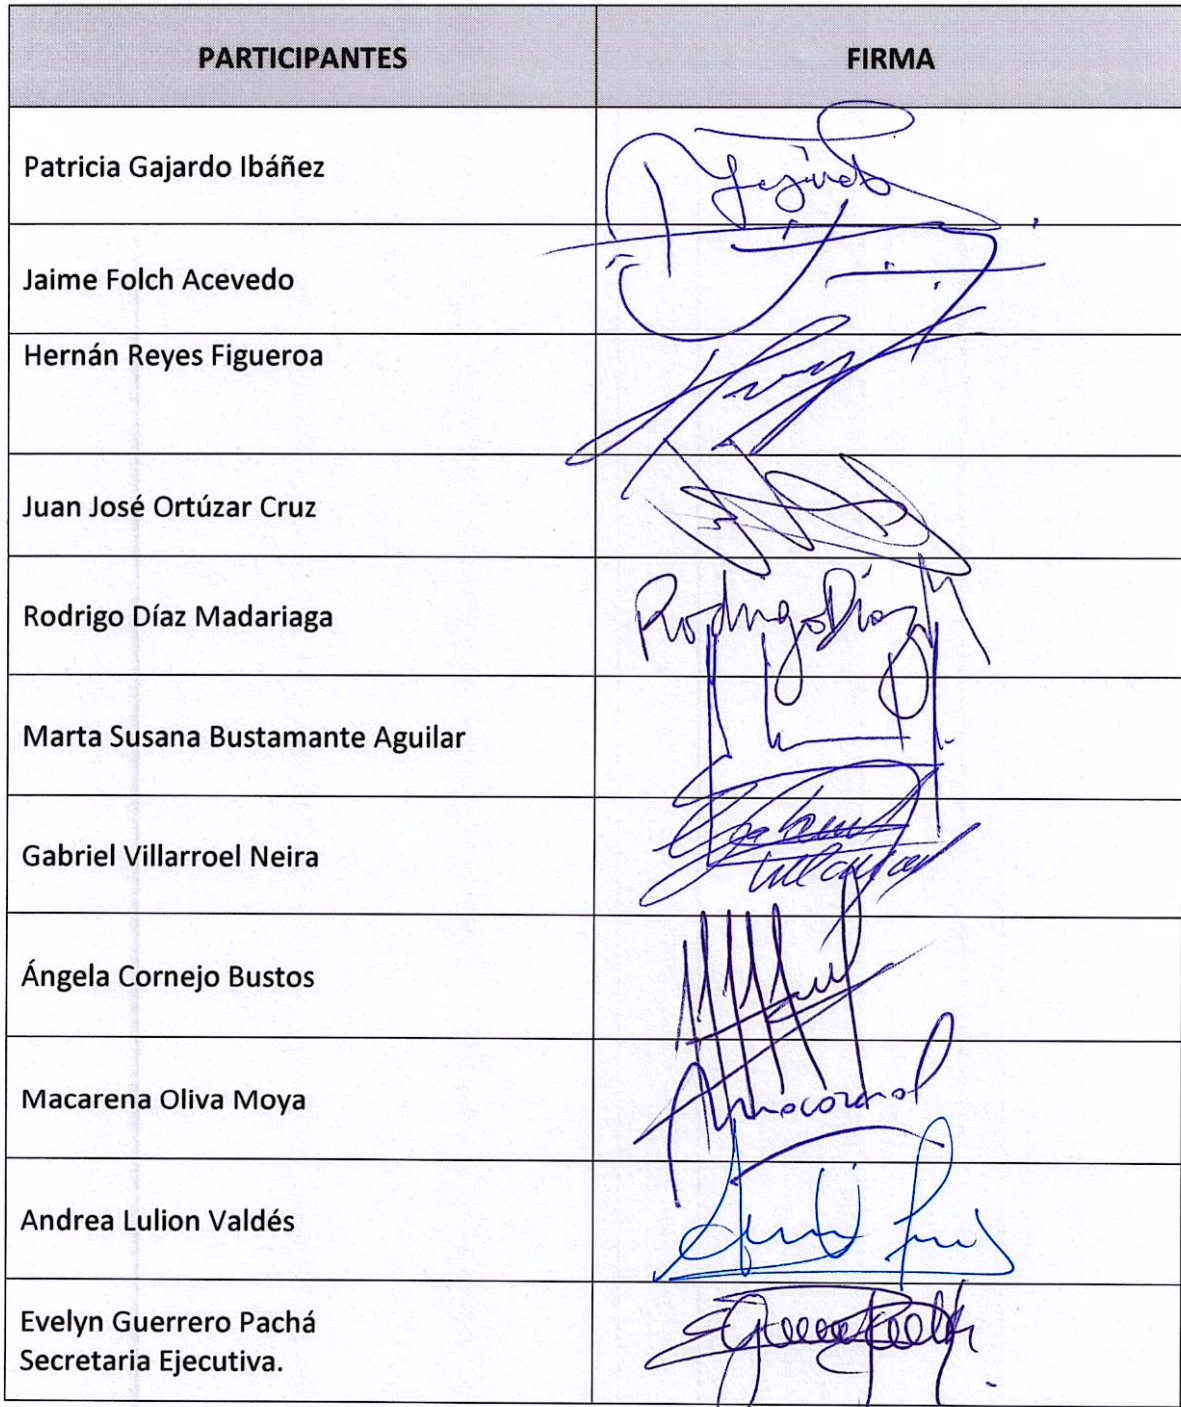 PARTICIPANTES FIRMA
Patricia Gajardo Ibáñez
Jaime Folch Acevedo
Hernán Reyes Figueroa
Juan José Ortúzar Cruz
Rodrigo Díaz Madariaga Rodrigo Díaz M
Marta Susana Bustamante Aguilar
Gabriel Villarroel Neira
Ángela Cornejo Bustos
Macarena Oliva Moya
Andrea Lulion Valdés
Evelyn Guerrero Pachá
Secretaria Ejecutiva.